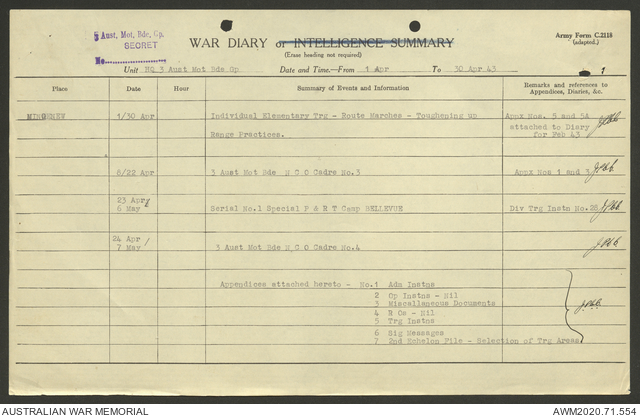 3 Aust. Mot. Bde. Gp.
SECRET
No.
WAR DIARY or INTELLIGENCE SUMMARY
(Erase heading not required)
Army Form C.2118
(adapted.)
Unit HQ 3 Aust Mot Bde Gp Date and Time.—From 1 Apr To 30 Apr 43
1
Place Date Hour Summary of Events and Information Remarks and references to Appendices, Diaries, &c.
MINGENEW 1/30 Apr Individual Elementary Trg - Route Marches - Toughening up Appx Nos. 5 and 5A
Range Practices. attached to Diary
for Feb 43
8/22 Apr 3 Aust Mot Bde N C O Cadre No.3 Appx Nos 1 and 3
23 Apr/
6 May Serial No.1 Special P & R T Camp BELLEVUE Div Trg Instn No.28
24 Apr/
7 May 3 Aust Mot Bde N C O Cadre No.4
Appendices attached hereto - No.1 Adm Instns
2 Op Instns - Nil
3 Miscellaneous Documents
4 R Os - Nil
5 Trg Instns
6 Sig Messages
7 2nd Echelon File - Selection of Trg Areas
AUSTRALIAN WAR MEMORIAL
AWM2020.71.554